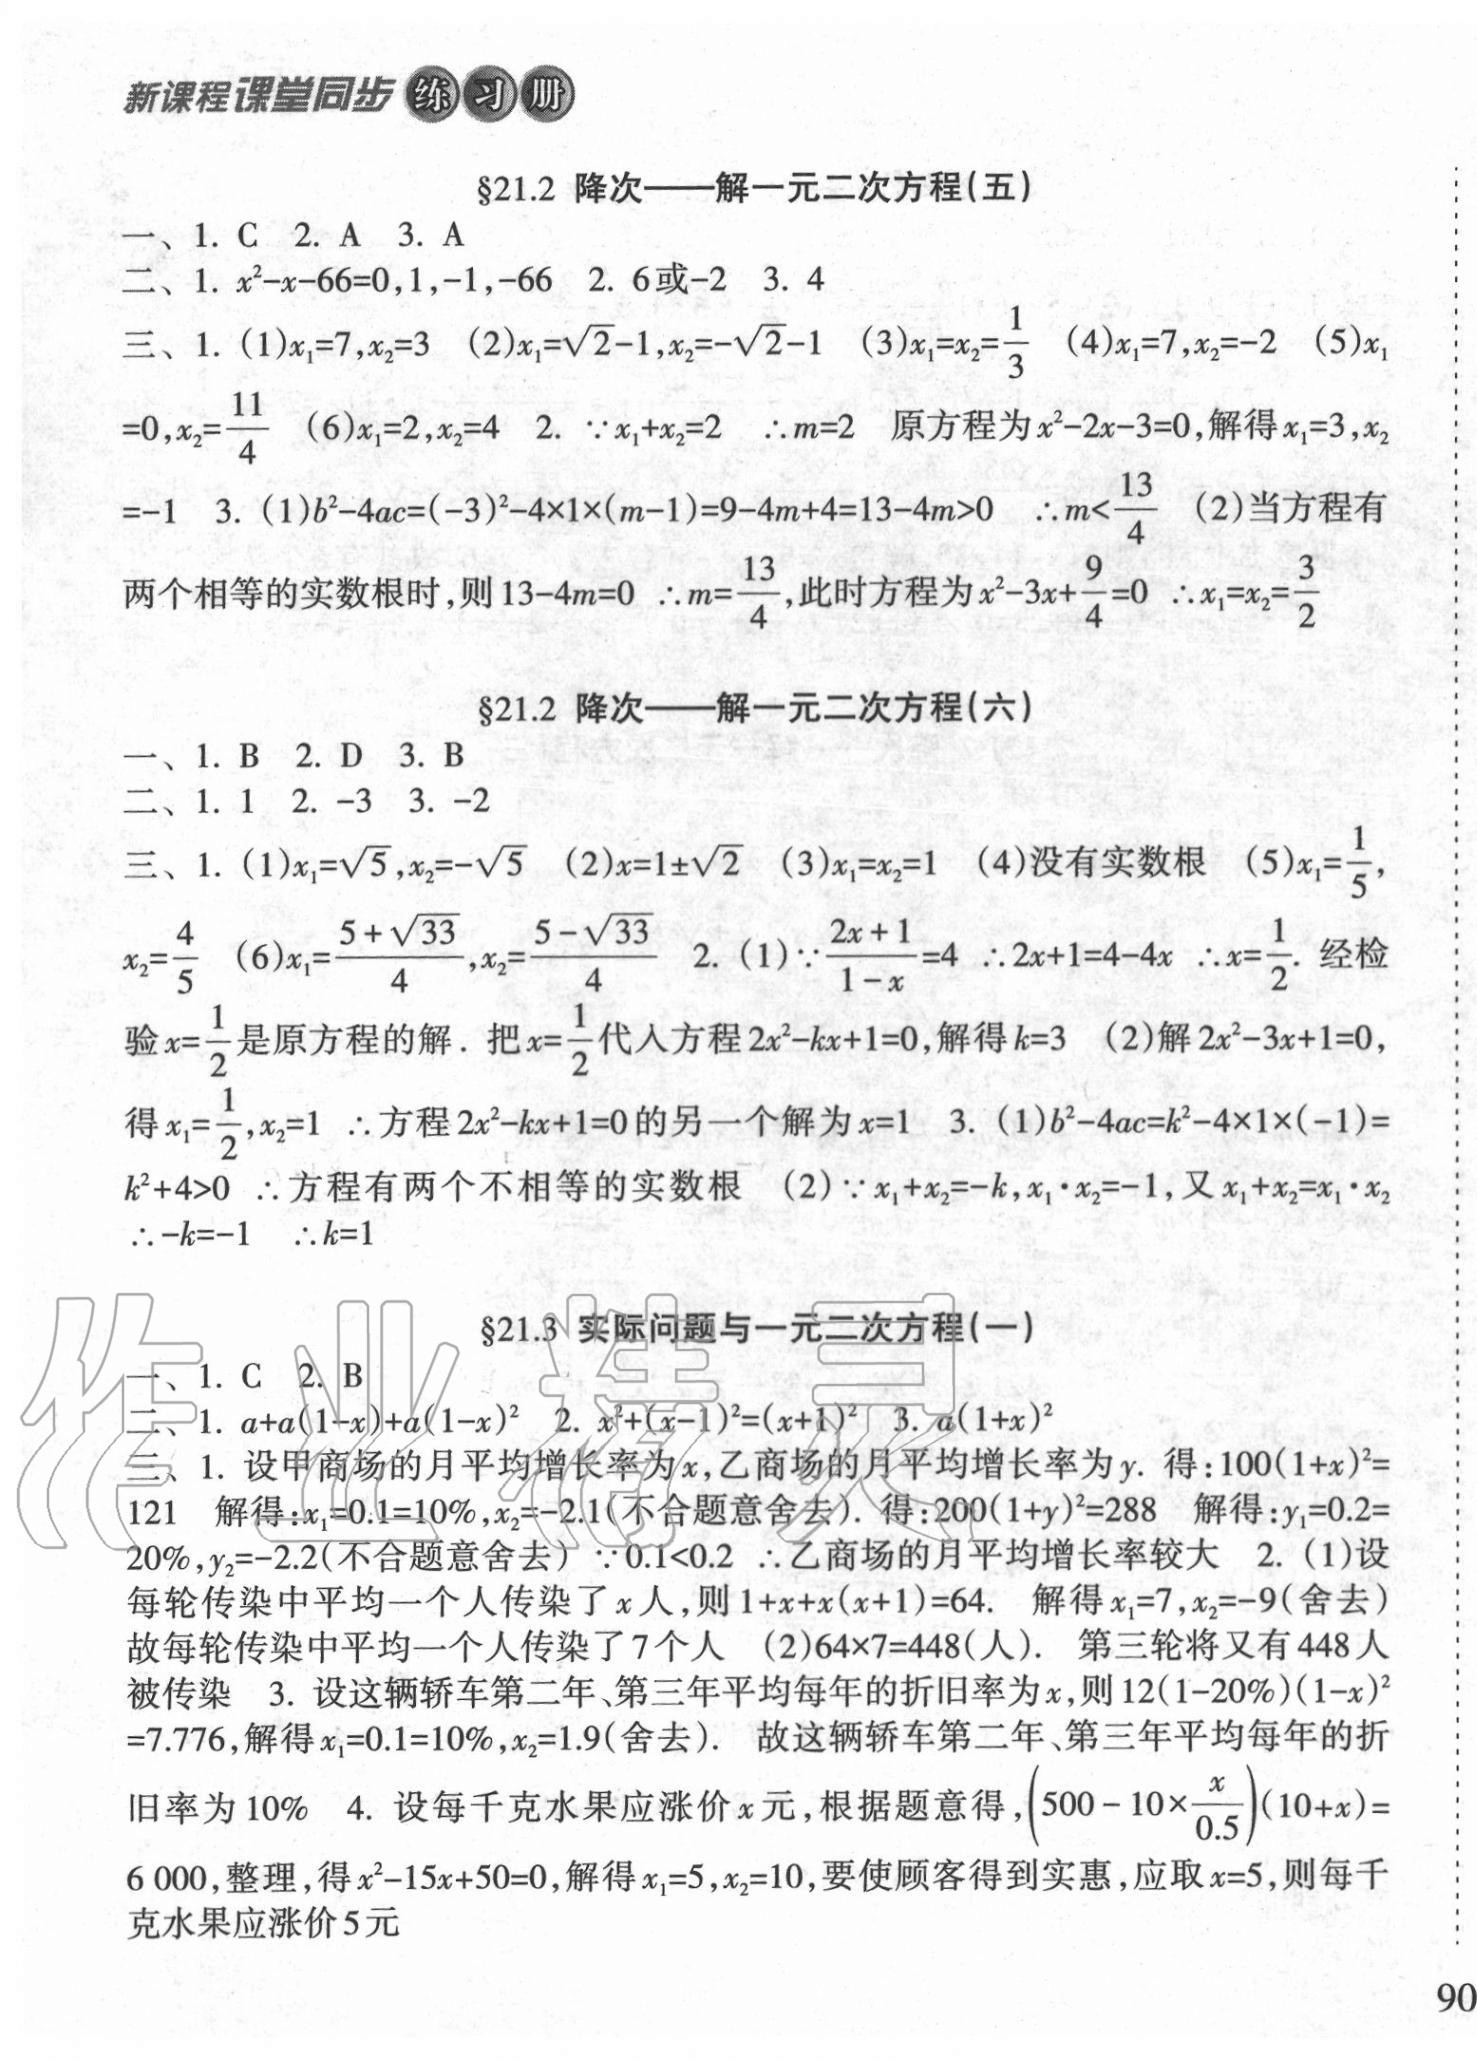 新课程课堂同步练习册
§21.2 降次——解一元二次方程(五)
一、1. C 2. A 3. A
二、1. x²-x-66=0,1,-1,-66 2. 6或-2 3. 4
三、1. (1)x₁=7,x₂=3 (2)x₁=√2-1,x₂=-√2-1 (3)x₁=x₂=1/3 (4)x₁=7,x₂=-2 (5)x₁
=0,x₂=11/4 (6)x₁=2,x₂=4 2. ∵x₁+x₂=2 ∴m=2 原方程为x²-2x-3=0,解得x₁=3,x₂
=-1 3. (1)b²-4ac=(-3)²-4×1×(m-1)=9-4m+4=13-4m>0 ∴m<13/4 (2)当方程有
两个相等的实数根时,则13-4m=0 ∴m=13/4,此时方程为x²-3x+9/4=0 ∴x₁=x₂=3/2
§21.2 降次——解一元二次方程(六)
一、1. B 2. D 3. B
二、1. 1 2. -3 3. -2
三、1. (1)x₁=√5,x₂=-√5 (2)x=1±√2 (3)x₁=x₂=1 (4)没有实数根 (5)x₁=1/5,
x₂=4/5 (6)x₁=(5+√33)/4,x₂=(5-√33)/4 2. (1)∵(2x+1)/(1-x)=4 ∴2x+1=4-4x ∴x=1/2. 经检
验x=1/2是原方程的解. 把x=1/2代入方程2x²-kx+1=0,解得k=3 (2)解2x²-3x+1=0,
得x₁=1/2,x₂=1 ∴方程2x²-kx+1=0的另一个解为x=1 3. (1)b²-4ac=k²-4×1×(-1)=
k²+4>0 ∴方程有两个不相等的实数根 (2)∵x₁+x₂=-k,x₁·x₂=-1,又x₁+x₂=x₁·x₂
∴-k=-1 ∴k=1
§21.3 实际问题与一元二次方程(一)
一、1. C 2. B
二、1. a+a(1-x)+a(1-x)² 2. x²+(x-1)²=(x+1)² 3. a(1+x)²
三、1. 设甲商场的月平均增长率为x,乙商场的月平均增长率为y. 得:100(1+x)²=
121 解得:x₁=0.1=10%,x₂=-2.1(不合题意舍去). 得:200(1+y)²=288 解得:y₁=0.2=
20%,y₂=-2.2(不合题意舍去) ∵0.1<0.2 ∴乙商场的月平均增长率较大 2. (1)设
每轮传染中平均一个人传染了x人,则1+x+x(x+1)=64. 解得x₁=7,x₂=-9(舍去)
故每轮传染中平均一个人传染了7个人 (2)64×7=448(人). 第三轮将又有448人
被传染 3. 设这辆轿车第二年、第三年平均每年的折旧率为x,则12(1-20%)(1-x)²
=7.776,解得x₁=0.1=10%,x₂=1.9(舍去). 故这辆轿车第二年、第三年平均每年的折
旧率为10% 4. 设每千克水果应涨价x元,根据题意得,(500-10×x/0.5)(10+x)=
6 000,整理,得x²-15x+50=0,解得x₁=5,x₂=10,要使顾客得到实惠,应取x=5,则每千
克水果应涨价5元
90
作业精灵